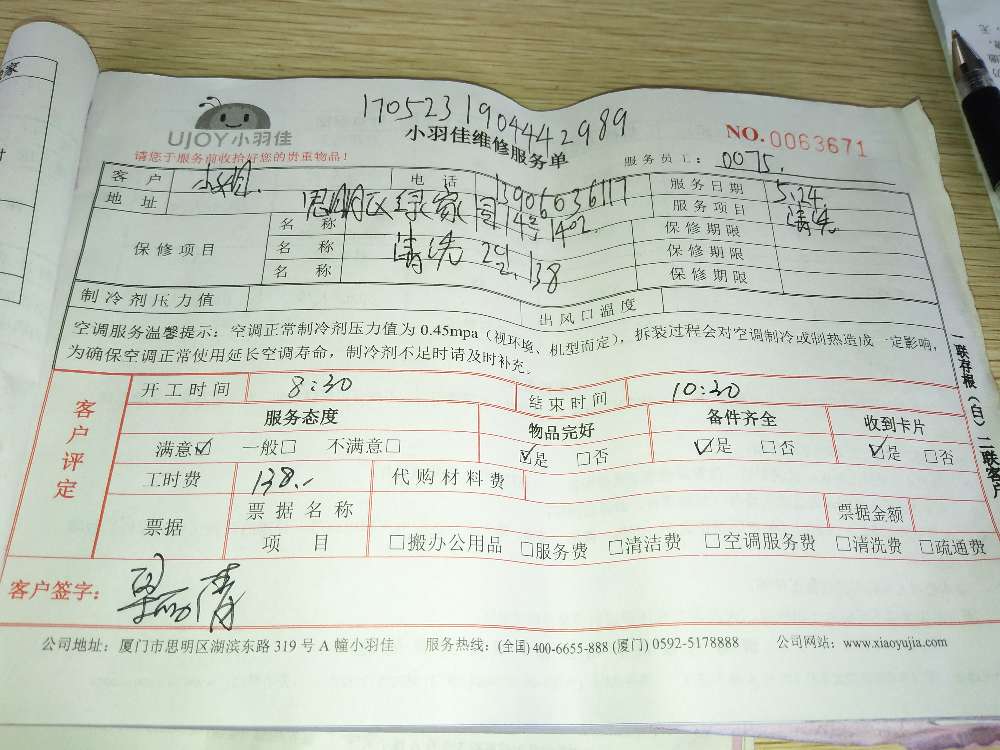 1705231904442989
UJOY小羽佳
小羽佳维修服务单
NO.0063671
请您于服务前收拾好您的贵重物品！
服务员工： 0075.
客户 小姐. 电话 13906036117 服务日期 5.24
地址 思明区绿家园14号1402. 服务项目 清洗
保修项目 名称 保修期限
名称 清洗 保修期限
名称 138 保修期限
制冷剂压力值 出风口温度
空调服务温馨提示：空调正常制冷剂压力值为 0.45mpa（视环境、机型而定），拆装过程会对空调制冷或制热造成一定影响，
为确保空调正常使用延长空调寿命，制冷剂不足时请及时补充。
客户评定
开工时间 8:30 结束时间 10:30
服务态度 物品完好 备件齐全 收到卡片
满意☑ 一般□ 不满意□ ☑是 □否 ☑是 □否 ☑是 □否
工时费 138.- 代购材料费
票据 票据名称 票据金额
项目 □搬办公用品 □服务费 □清洁费 □空调服务费 □清洗费 □疏通费
客户签字：
公司地址：厦门市思明区湖滨东路 319 号 A 幢小羽佳 服务热线：(全国) 400-6655-888 (厦门) 0592-5178888 公司网站：www.xiaoyujia.com
一联存根（白）二联客户